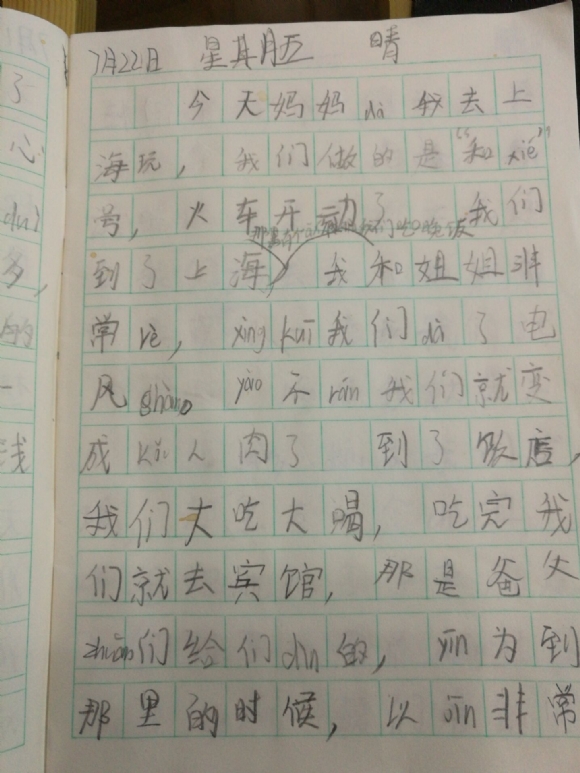 7月22日 星期五 晴
今天妈妈dài我去上
海玩，我们做的是“和xié”
号，火车开动了 我们
到了上海，我和姐姐非
常rè，xìng kuī我们dài了电
风shàn。yào不rán我们就变
成kǎo人肉了 到了饭店，
我们大吃大喝，吃完我
们就去宾馆，那是爸爸
zhuān们给们din的，yīn为到
那里的时候，以jīn非常
了
心
多，
的
一
浅